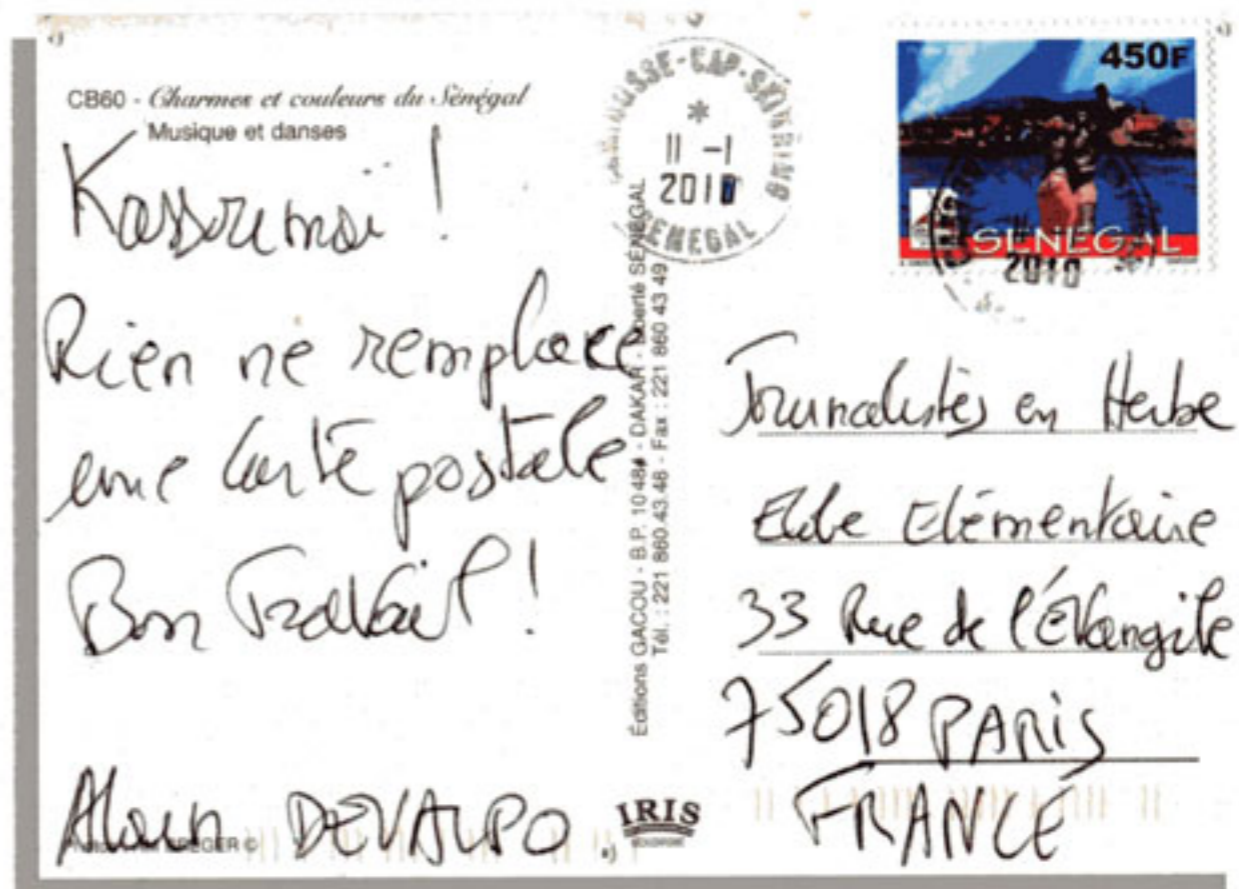 CB60 - Charmes et couleurs du Sénégal
Musique et danses
Kassoumaï !
Rien ne remplace
une carte postale
Bon Travail !
Alain DEVALPO
Éditions GACOU - B.P. 10484 - DAKAR - Liberté SÉNÉGAL
Tél. : 221 860.43.48 - Fax : 221 860 43 49
CAP-SKIRING
11 -1
2010
SENEGAL
450F
SENEGAL
2010
Journalistes en Herbe
Ecole Elémentaire
33 Rue de l'Évangile
75018 PARIS
FRANCE
IRIS